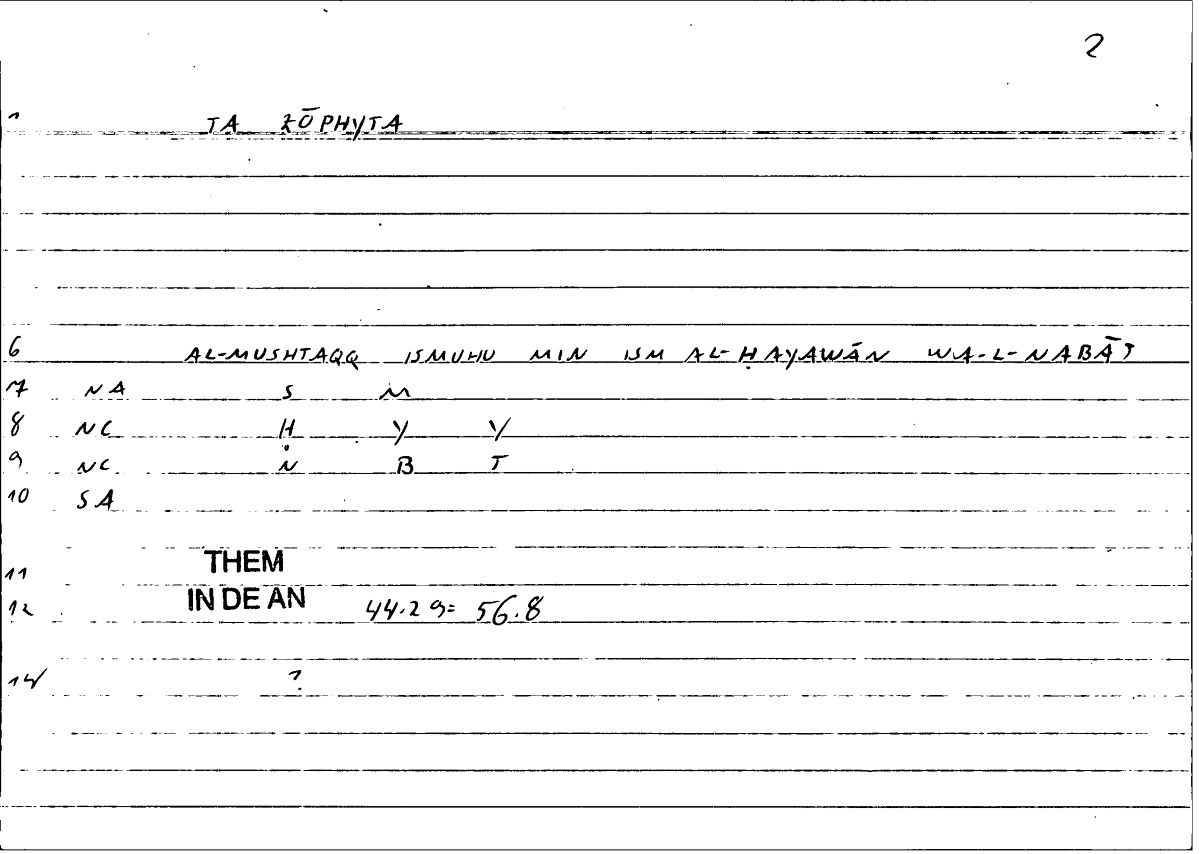 2
1 TA ZŌPHYTA
6 AL-MUSHTAQQ ISMUHU MIN ISM AL-ḤAYAWĀN WA-L-NABĀT
7 NA S M
8 NC Ḥ Y Y
9 NC N B T
10 SA
11 THEM
12 IN DE AN 44.29= 56.8
14 ?